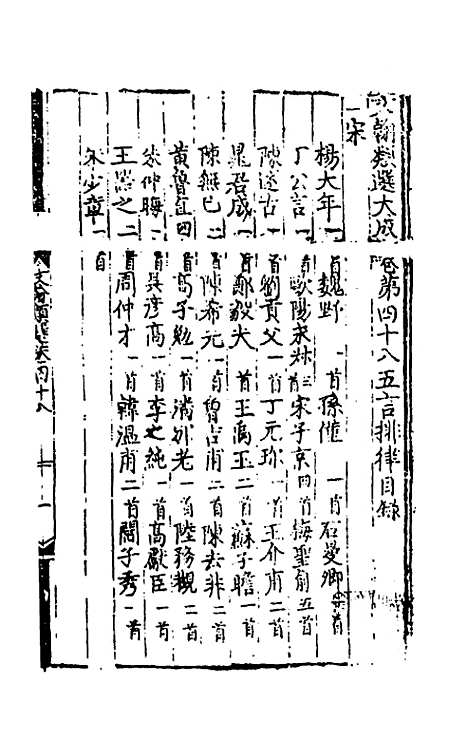 文翰類選大成卷第四十八五言排律目錄
宋
楊大年一首 魏野一首 孫僅一首 石曼卿 首
丁公言一首 歐陽永叔三首 宋子京四首 梅聖俞五首
陳述古一首 劉貢父一首 丁元珍一首 王介甫二首
晁君成一首 鄭毅夫 首 王禹玉二首 蘇子瞻一首
陳無己二首 陳希元一首 曾吉甫二首 陳去非二首
黃魯直四首 高子勉一首 潘邠老一首 陸務觀二首
朱仲晦一首 吳彥高一首 李之純一首 高獻臣一首
王器之二首 周仲才一首 韓溫甫二首 閻子秀一首
朱少章一首
文翰類選卷四十八